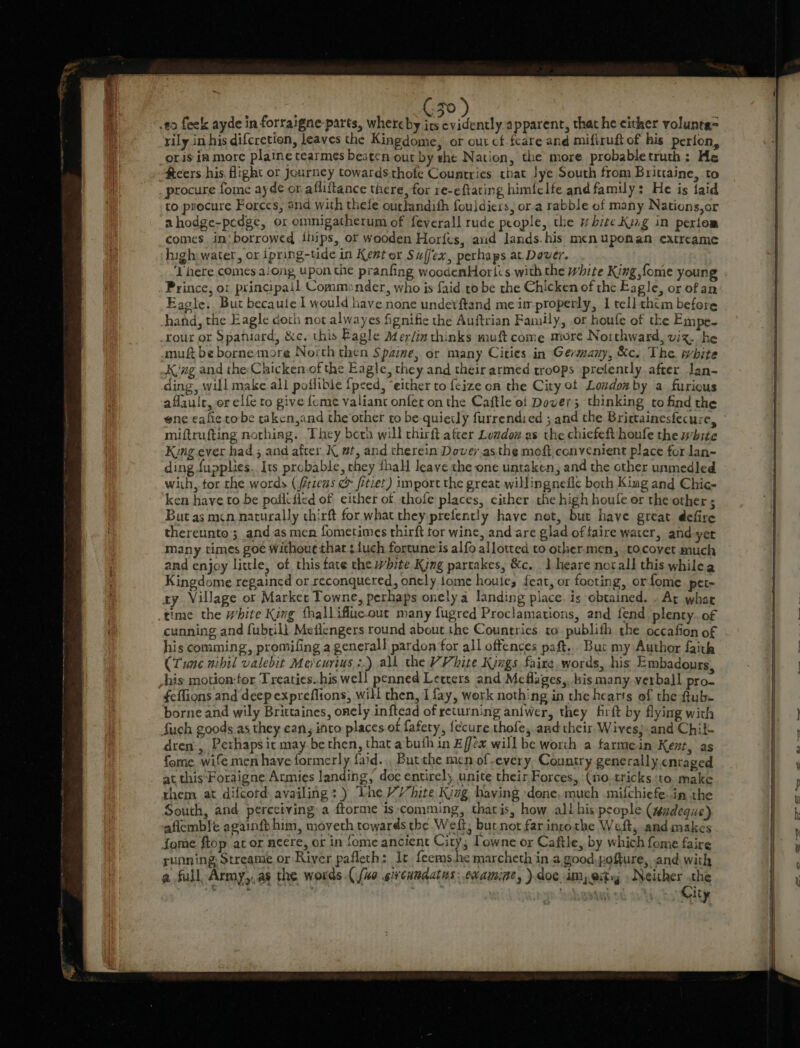 (30)
to ſeek ayde in forraigne parts, whereby its evidently apparent, that he either volunta-
rily in his diſcretion, leaves the Kingdome, or out of feare and miſtruſt of his perſon,
or is in more plaine tearmes beaten out by the Nation, the more probable truth: He
ſteers his flight or journey towards thoſe Countries that lye South from Brittaine, to
procure ſome ayde or aſſiſtance there, for re-eſtating himſelfe and family: He is ſaid
to procure Forces, and with theſe outlandiſh ſouldiers, or a rabble of many Nations, or
a hodge-podge, or omnigatherum of ſeverall rude people, the white King in perſon
comes in borrowed ſhips, or wooden Horſes, and lands his men upon an extreame
high water, or ſpring-tide in Kent or Suſſex, perhaps at Dover.
There comes along upon the pranſing wooden Horſes with the white King, ſome young
Prince, or principall Commander, who is ſaid to be the Chicken of the Eagle, or of an
Eagle. But becauſe I would have none underſtand me improperly, I tell them before
hand, the Eagle doth not alwayes ſignifie the Auſtrian Family, or houſe of the Empe-
rour or Spaniard, &c. this Eagle Merlin thinks muſt come more Northward, viz. he
muſt be borne more North then Spaine, or many Cities in Germany, &c. The white
King and the Chicken of the Eagle, they and their armed troops preſently after lan-
ding, will make all poſſible ſpeed, either to ſeize on the City of London by a furious
aſſault, or elſe to give ſome valiant onſet on the Caſtle of Dover; thinking to find the
one eaſie to be taken, and the other to be quietly ſurrendred; and the Brittaines ſecure,
miſtruſting nothing. They both will thirſt after London as the chiefeſt houſe the white
King ever had; and after K, ut, and therein Dover as the moſt convenient place for lan-
ding ſupplies. Its probable, they ſhall leave the one untaken, and the other unmedled
with, for the words (ſitiens & ſitiet) import the great willingneſſe both King and Chic-
ken have to be poſſeſſed of either of thoſe places, either the high houſe or the other;
But as men naturally thirſt for what they preſently have not, but have great deſire
thereunto; and as men ſometimes thirſt for wine, and are glad of faire water, and yet
many times goe without that: ſuch fortune is alſo allotted to other men, to covet much
and enjoy little, of this fate the white King partakes, &c. I heare not all this while a
Kingdome regained or reconquered, onely ſome houſe, ſeat, or footing, or ſome pet-
ty Village or Market Towne, perhaps onely a landing place is obtained. At what
time the white King ſhall iſſue out many ſugred Proclamations, and ſend plenty of
cunning and ſubtill Meſſengers round about the Countries to publiſh the occaſion of
his comming, promiſing a generall pardon for all offences paſt. But my Author ſaith
(Tunc nihil valebit Mercurius:) all the VVhite Kings faire words, his Embadours,
his motion for Treaties, his well penned Letters and Meſſages, his many verball pro-
feſſions and deep expreſſions, will then, I ſay, work nothing in the hearts of the ſtub-
borne and wily Brittaines, onely inſtead of returning anſwer, they firſt by flying with
ſuch goods as they can, into places of ſafety, ſecure thoſe, and their Wives, and Chil-
dren, Perhaps it may be then, that a buſh in Eſſex will be worth a farme in Kent, as
ſome wiſe men have formerly ſaid. But the men of every Country generally enraged
at this Foraigne Armies landing, doe entirely unite their Forces, (no tricks to make
them at diſcord availing:) The VVhite King having done much miſchiefe in the
South, and perceiving a ſtorme is comming, that is, how all his people (undeque)
aſſemble againſt him, moveth towards the Weſt, but not far into the Weſt, and makes
ſome ſtop at or neere, or in ſome ancient City, Towne or Caſtle, by which ſome faire
running Streame or River paſſeth: It ſeems he marcheth in a good poſture, and with
a full Army, as the words (ſuo circundatus examine,) doe imports. Neither the
City